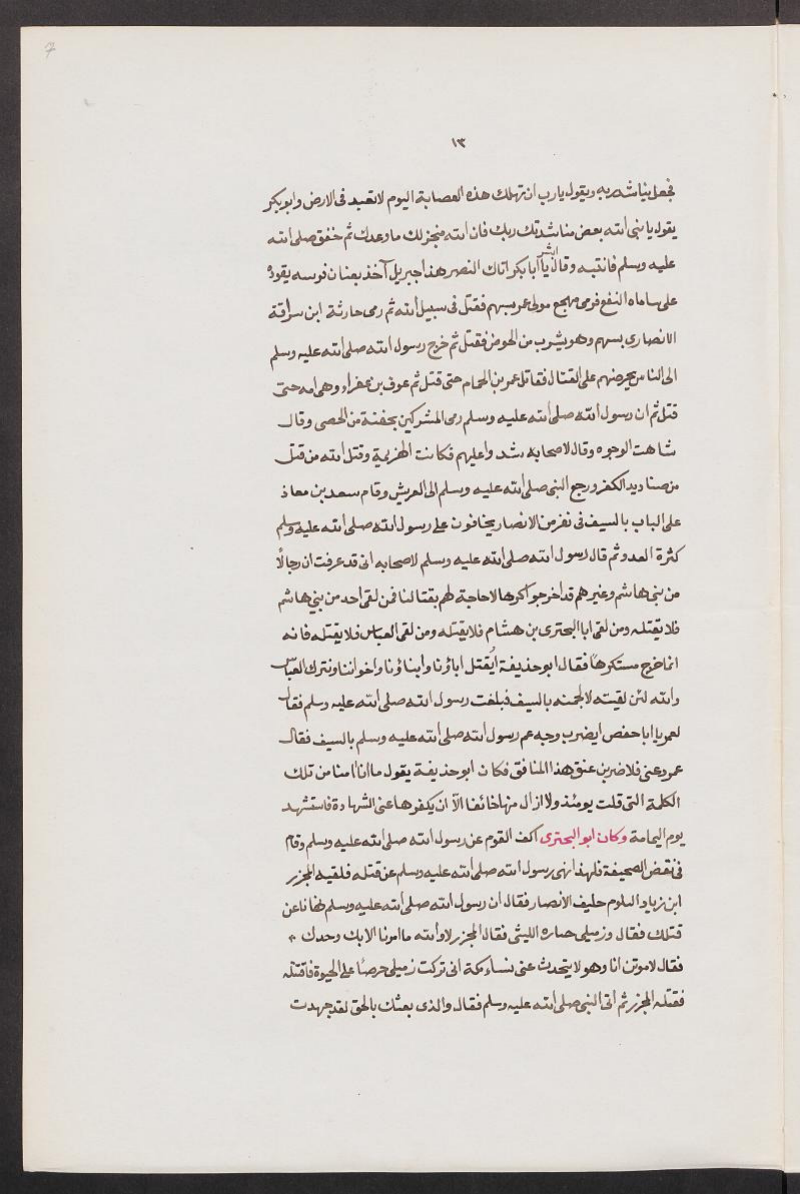 7
١٣
فجعل يناشد ربه ويقول يارب ان تهلك هذه العصابة اليوم لا تعبد فى الارض وابوبكر
يقول يا نبى الله بعض مناشدتك ربك فان الله منجز لك ما وعدك ثم خفق صلى الله
عليه وسلم فانتبه وقال ابشر يا أبا بكر اتاك النصر هذا جبريل آخذ بعنان فرسه يقوده
على ساماه النقع فرمى مهجع مولى عمر بسهم فقتل فى سبيل الله ثم رمى حارثة ابن سراقة
الانصارى بسهم وهو يشرب من الحوض فقتل ثم خرج رسول الله صلى الله عليه وسلم
الى الناس يحرضهم على القتال فقاتل عمر بن الحمام حتى قتل ثم عوف بن عفراء وهى امه حتى
قتل ثم ان رسول الله صلى الله عليه وسلم رمى المشركين بحفنة من الحصى وقال
شاهت الوجوه وقال لاصحابه شدوا عليهم فكانت الهزيمة وقتل الله من قتل
من صناديد الكفر ورجع النبى صلى الله عليه وسلم الى العريش وقام سعد بن معاذ
على الباب بالسيف فى نفر من الانصار يخافون على رسول الله صلى الله عليه وسلم
كثرة العدو ثم قال رسول الله صلى الله عليه وسلم لاصحابه انى قد عرفت ان رجالًا
من بنى هاشم وغيرهم قد اخرجوا كرها لا حاجة لهم بقتالنا فمن لقى احد من بني هاشم
فلا يقتله ومن لقى ابا البحترى بن هشام فلا يقتله ومن لقى العباس فلا يقتله فانه
انما خرج مستكرهًا فقال ابو حذيفة أيُقتل اباؤنا وابناؤنا واخواننا ونترك العباس
والله لئن لقيته لالجمنه بالسيف فبلغت رسول الله صلى الله عليه وسلم فقال
لعمر يا ابا حفص ايضرب وجه عم رسول الله صلى الله عليه وسلم بالسيف فقال
عمر دعنى فلاضربن عنق هذا المنافق فكان ابو حذيفة يقول ما انا امنا من تلك
الكلمة التى قلت يومئذ ولا ازال منها خائفا الآ ان يكفرها عنى الشهادة فاستشهد
يوم اليمامة وكان ابو البحترى اكف القوم عن رسول الله صلى الله عليه وسلم وقام
فى نقض الصحيفة فلهذا نهى رسول الله صلى الله عليه وسلم عن قتله فلقيه المجزر
ابن زياد البلوم حليف الانصار فقال ان رسول الله صلى الله عليه وسلم نهانا عن
قتلك فقال وزميلى جباره الليثى فقال المجزر لا والله ما امرنا الا بك وحدك
فقال لاموتن انا وهو لا يتحدث عنى نساء مكة انى تركت زميلى حرصًا على الحيوة فاقتتله
فقتله المجزر ثم اتى النبى صلى الله عليه وسلم فقال والذى بعثك بالحق لقد جهدت